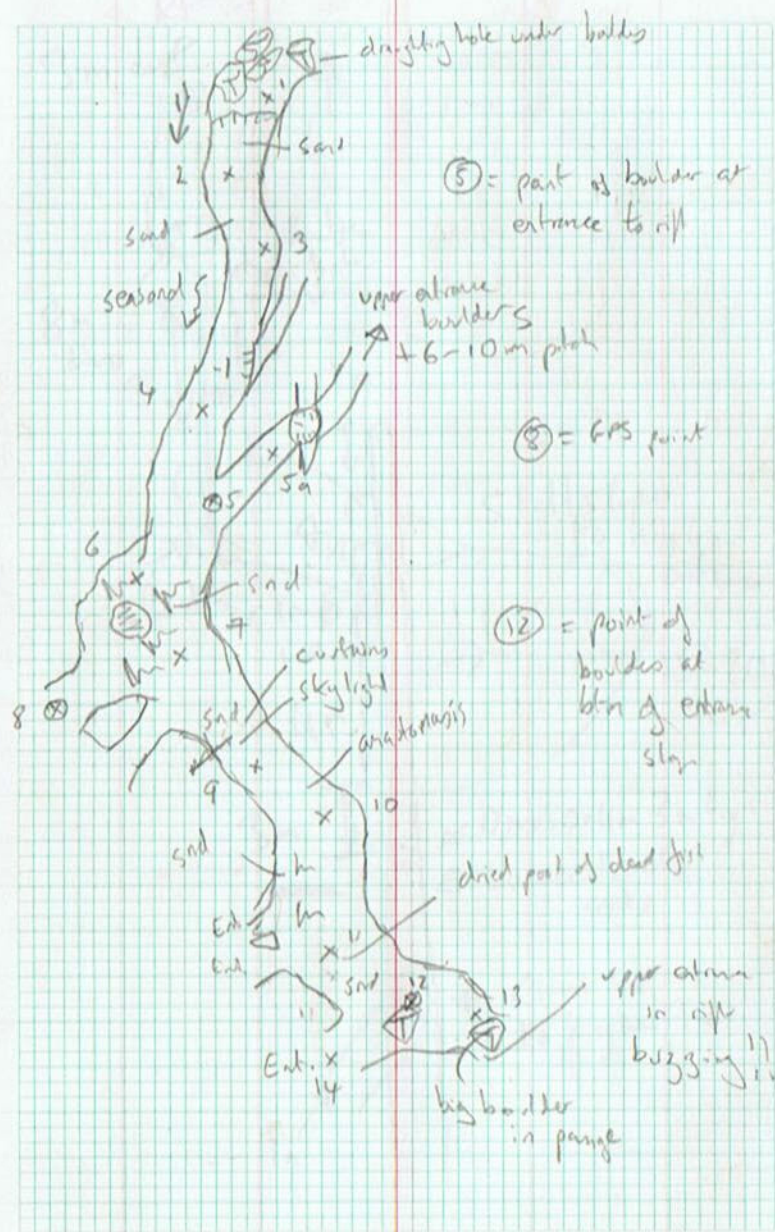 draughting hole under
1
sand
2
⑤ = point of boulder at
entrance to rift
sand
3
seasonal
upper entrance
boulders
+ 6-10 m pitch
-1
4
⑧ = GPS point
5a
5
6
snd
7
⑫ = point of
boulder at
btm of entrance
curtains
skylight
8
snd
9
10
snd
dried part of dead fish
Ent.
11
Ent.
snd
12
13
upper entrance
in rift
buzzing !!
Ent.
14
big boulder
in